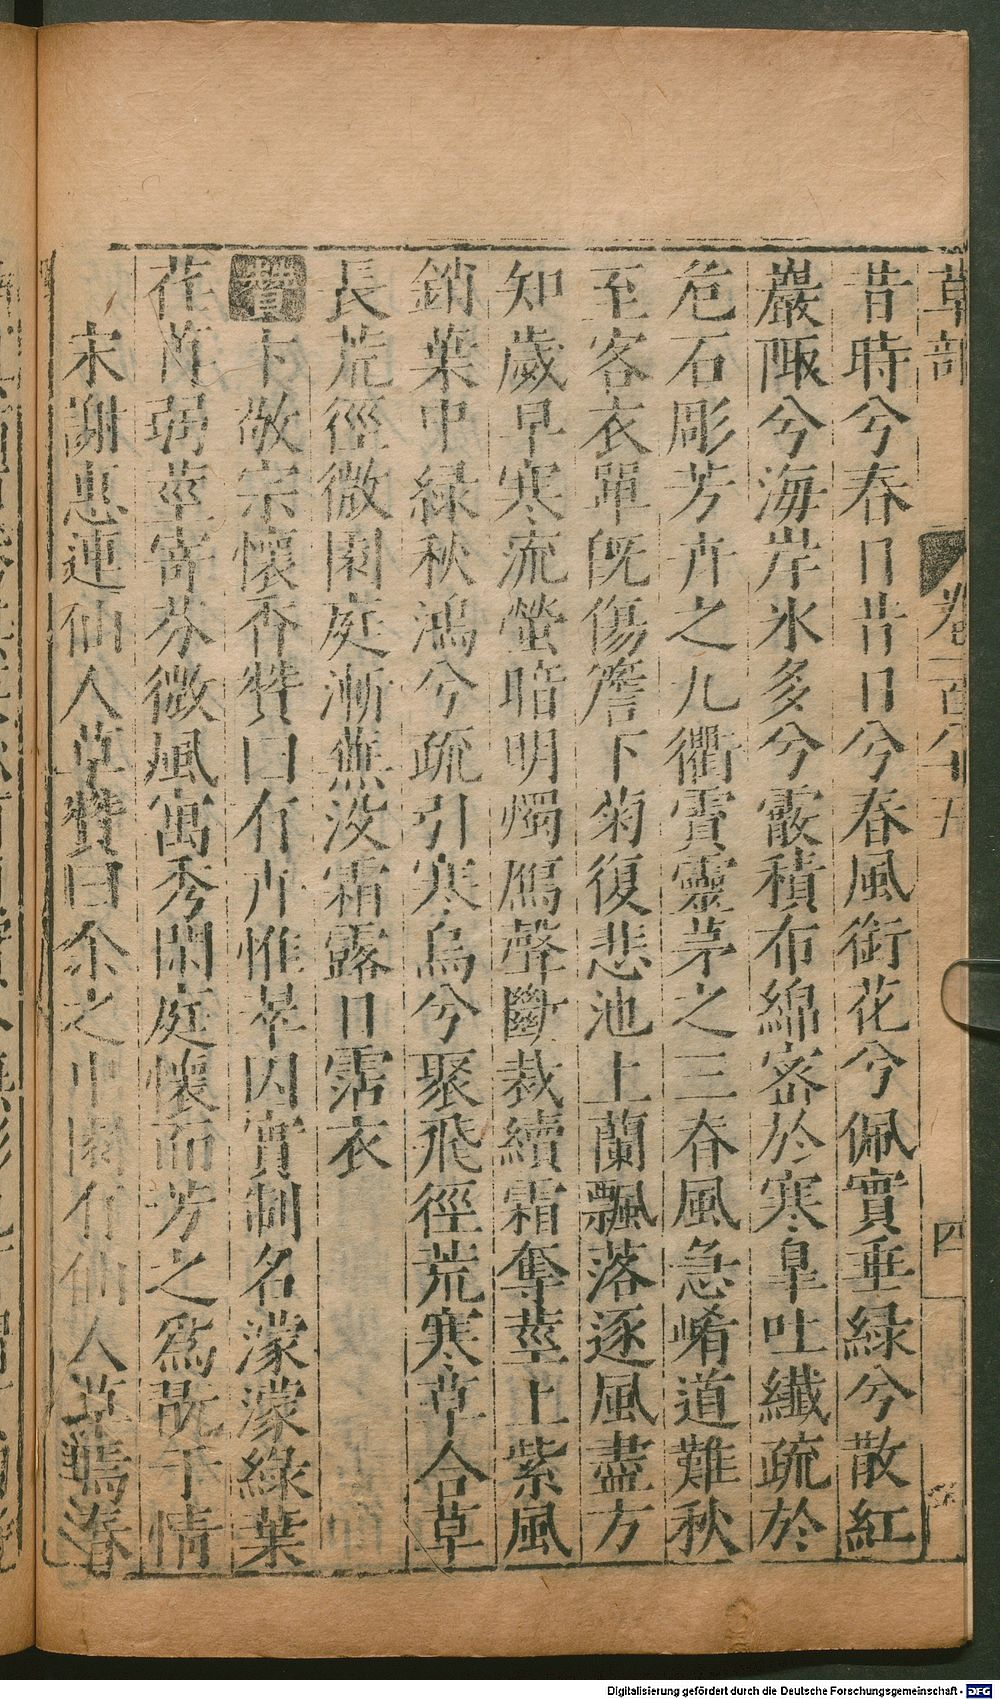 草部 卷一百八十五 四
昔時兮春日昔日兮春風銜花兮佩實垂綠兮散紅
巖陬兮海岸氷多兮霰積布綿密於寒皐吐纖疏於
危石彫芳卉之九衢霣靈茅之三春風急崤道難秋
至客衣單旣傷簷下菊復悲池上蘭飄落逐風盡方
知歲早寒流螢暗明燭鴈聲斷裁續霜奪莖上紫風
銷葉中綠秋鴻兮疏引寒烏兮聚飛徑荒寒草合草
長荒徑微園庭漸蕪沒霜露日霑衣
贊 卞敬宗懷香贊曰有卉惟萃因實制名濛濛綠葉
茌苒弱莖寄芬微風寓秀閑庭懷而芳之爲翫于情
宋謝惠連仙人草贊曰余之中園有仙人草焉春
Digitalisierung gefördert durch die Deutsche Forschungsgemeinschaft - DFG